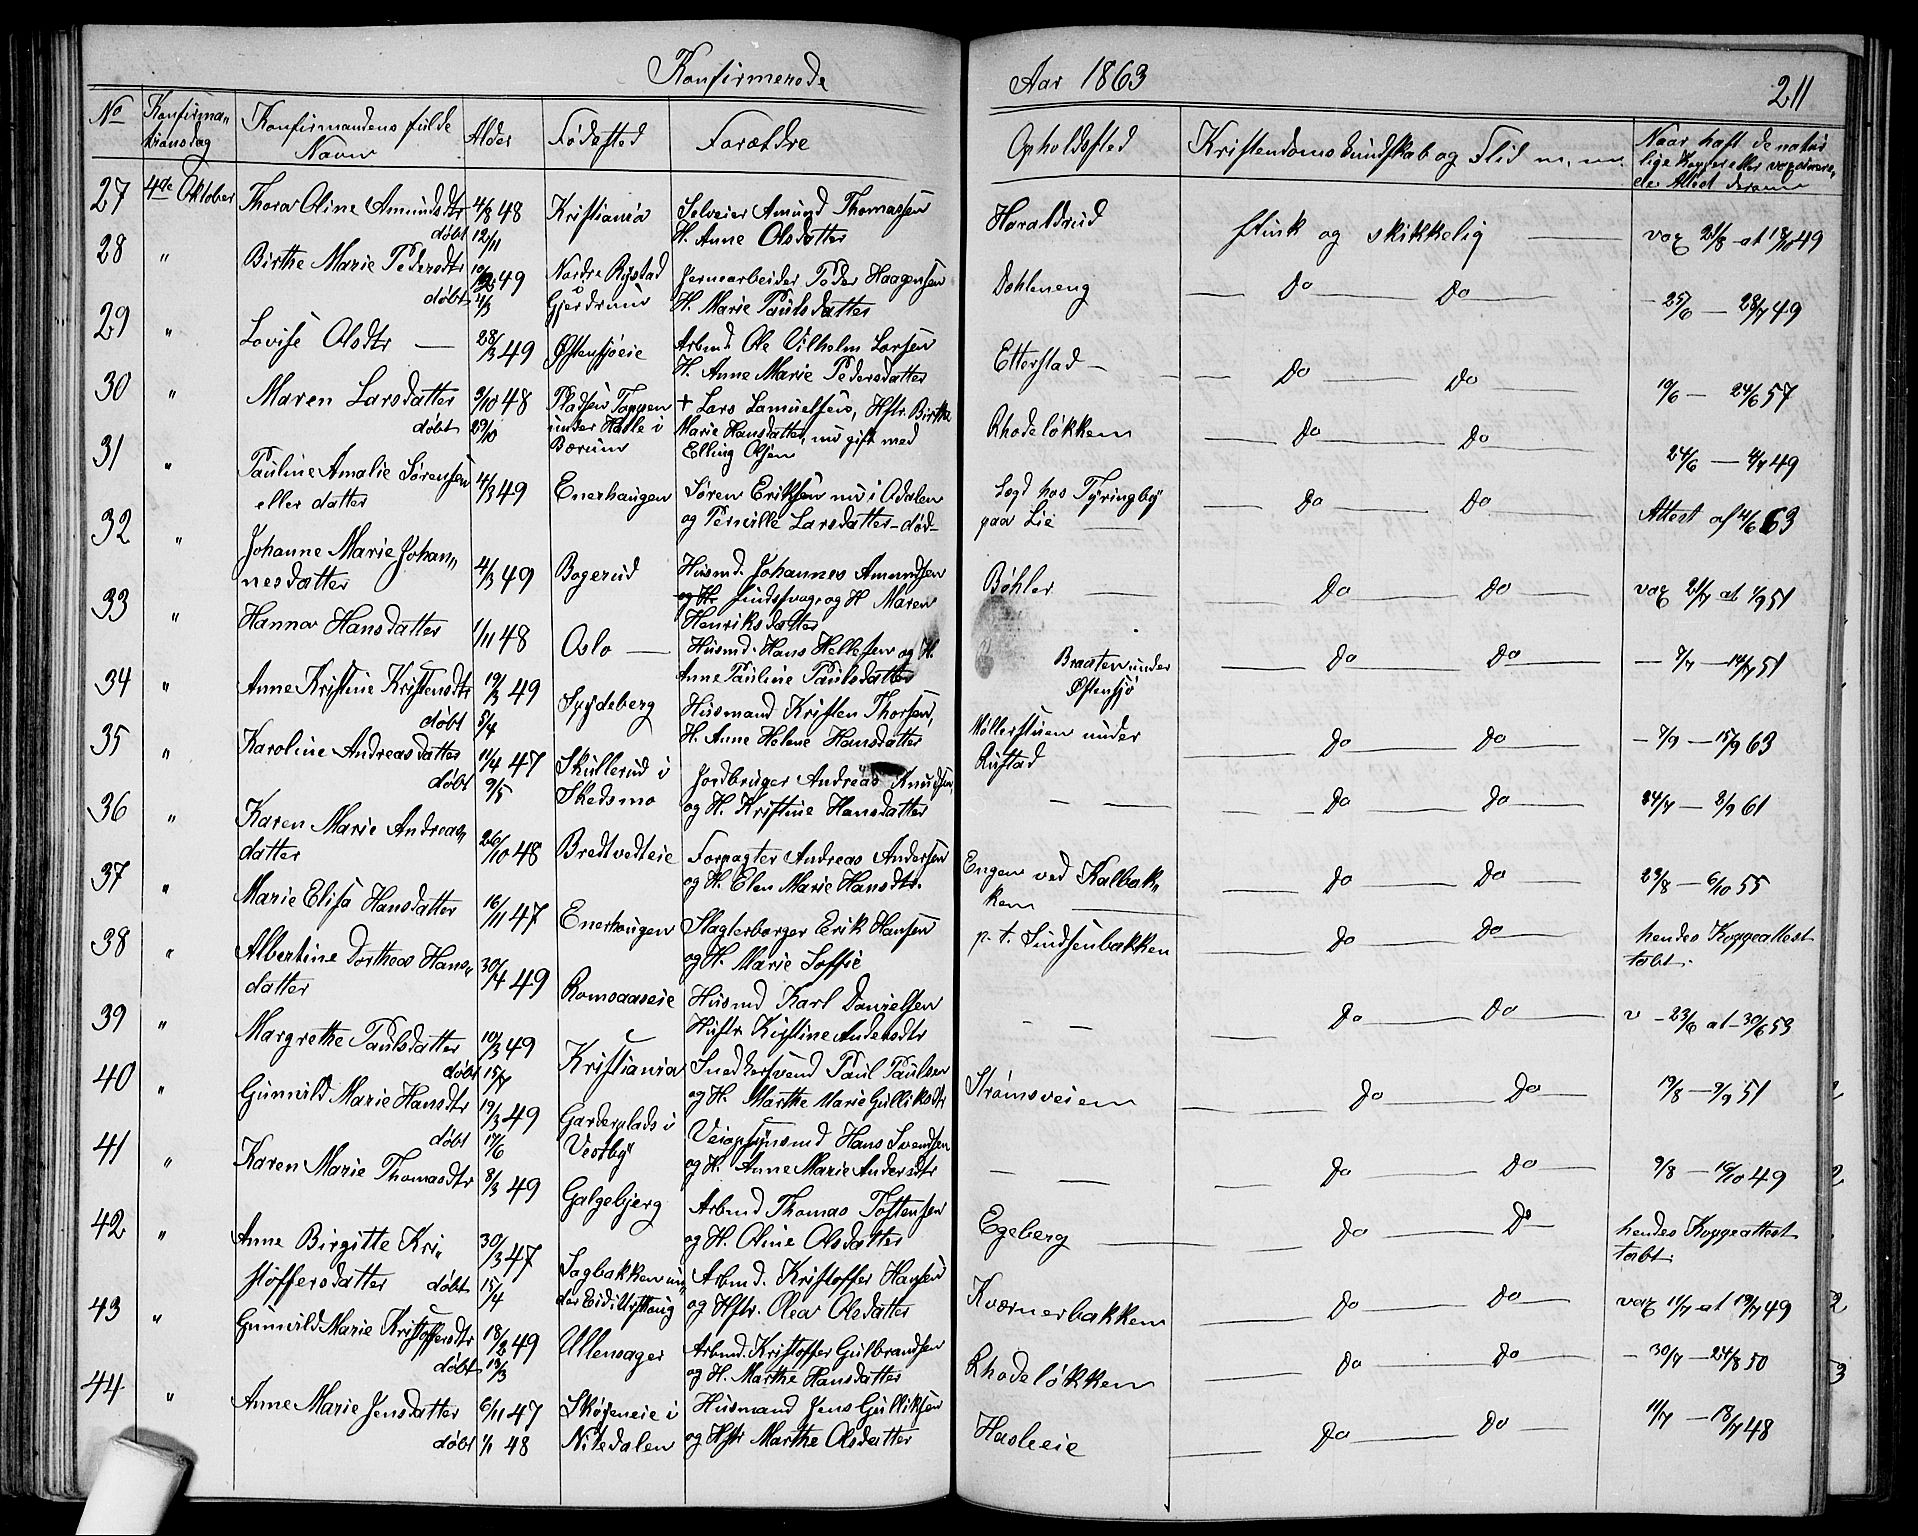 Konfirmerede
Aar 1863
211
No
Konfirma-
tionsdag
Konfirmandens fulde
Navn
Alder
Fødested
Forældre
Opholdssted
Kristendomskundskab og Flid m. m.
Naar haft de natur
lige Kopper eller
27 4de Oktober Thora Oline Amundsdtr 4/8 48 Kristiania Selveier Amund Thomassen Haraldrud flink og skikkelig — vax 21/8 at 18/10 49
døbt 12/11 H. Anne Olsdatter
28 " Birthe Marie Pedersdtr 49 Nordre Rystad Jernarbeider Peder Haagensen Dehleneng — Do — Do — 25/6 — 28/7 49
døbt 4/3 i Gjerdrum H. Marie Paulsdatter
29 " Lovise Olsdtr — 28/3 49 Østensjøeie Arbmd. Ole Vilhelm Larsen Etterstad — Do — Do — 19/6 — 24/6 57
H. Anne Marie Pedersdatter
30 " Maren Larsdatter 9/10 48 Pladsen Tappen + Lars Samuelsens, Hstr. Birthe Rhodeløkken — Do — Do — 24/6 — 4/7 49
døbt 29/10 under Hasle i Marie Hansdatter, nu gift med
Bærum Elling Olsen
31 " Pauline Amalie Sørensen 4/3 49 Enerhaugen Søren Eriksen nu i Adalen Logd hos Tyringby — Do — Do — Attest af 4/6 63
eller datter og Pernille Larsdatter -død- paa Lie
32 " Johanne Marie Johan- 4/3 49 Bogerud Husmd. Johannes Amundsen Bøhler — Do — Do — vax 21/7 at 1/9 51
nesdatter og H Maren
Henriksdatter
33 " Hanna Hansdatter 1/11 48 Oslo — Husmd. Hans Hellesen og H. Braaten under — Do — Do — 7/7 — 14/7 51
Anne Pauline Paulsdatter Østensjø
34 " Anne Kristine Kristensdtr 19/3 49 Spydeberg Husmand Kristen Thorsen, Møllerstuen under — Do — Do — 7/9 — 15/9 63
døbt 5/4 H. Anne Helene Hansdatter Rustad
35 " Karoline Andreasdatter 11/4 47 Skullerud i Jordbruger Andreas Knudsen — — Do — Do — 24/7 — 2/9 61
døbt 9/5 Skedsmo og H. Kristine Hansdatter
36 " Karen Marie Andreas- 26/10 48 Bredtvedteie Forpagter Andreas Andersen Engen ved Kalbak- — Do — Do — 29/8 — 6/10 55
datter og H. Elen Marie Hansdtr. ken
37 " Marie Elisa Hansdatter 16/11 47 Enerhaugen Slagterborger Erik Hansen p. t. Sindsenbakken — Do — Do — hendes Koppeattest
og H. Marie Soffie tabt.
38 " Albertine Dorthea Hans- 30/4 49 Romsaaseie Husmd Karl Danielsen — — Do — Do — v — 23/6 at 30/6 53
datter Hustr. Kirstine Andersdtr
39 " Margrethe Paulsdatter 10/3 49 Kristiania Snedkersvend Paul Paulsen Strømsveien — Do — Do — 19/8 — 9/9 51
døbt 15/7 og H. Marthe Marie Gulliksdtr
40 " Gunvild Marie Hansdtr 19/3 49 Garderplads i Veiopsynsmd Hans Svendsen — — Do — Do — 9/8 — 10/10 49
døbt 17/6 Vestby og H. Anne Marie Andersdtr
41 " Karen Marie Thomasdtr 8/3 49 Galgebjerg Arbmd Thomas Toftensen Egeberg — Do — Do — hendes Koppeattest
og H. Oline Olsdatter tabt.
42 " Anne Birgitte Kri- 30/3 47 Sagbakken un- Arbmd. Kristoffer Hansen Kværnerbakken — Do — Do — vax 11/7 at 19/7 49
stoffersdatter døbt 15/4 og Hstr. Olea Olsdatter
43 " Gunvild Marie Kristoffersdtr 18/2 49 Ullensager Arbmd. Kristoffer Gulbrandsen Rhodeløkken — Do — Do — 30/7 — 24/8 50
døbt 13/3 og H. Marthe Hansdatter
44 " Anne Marie Jensdatter 6/11 47 Skøieneie i Husmand Jens Gulliksen Hasleeie — Do — Do — 11/7 — 18/7 48
døbt 1/1 48 Nitedalen og Hstr Marthe Olsdatter